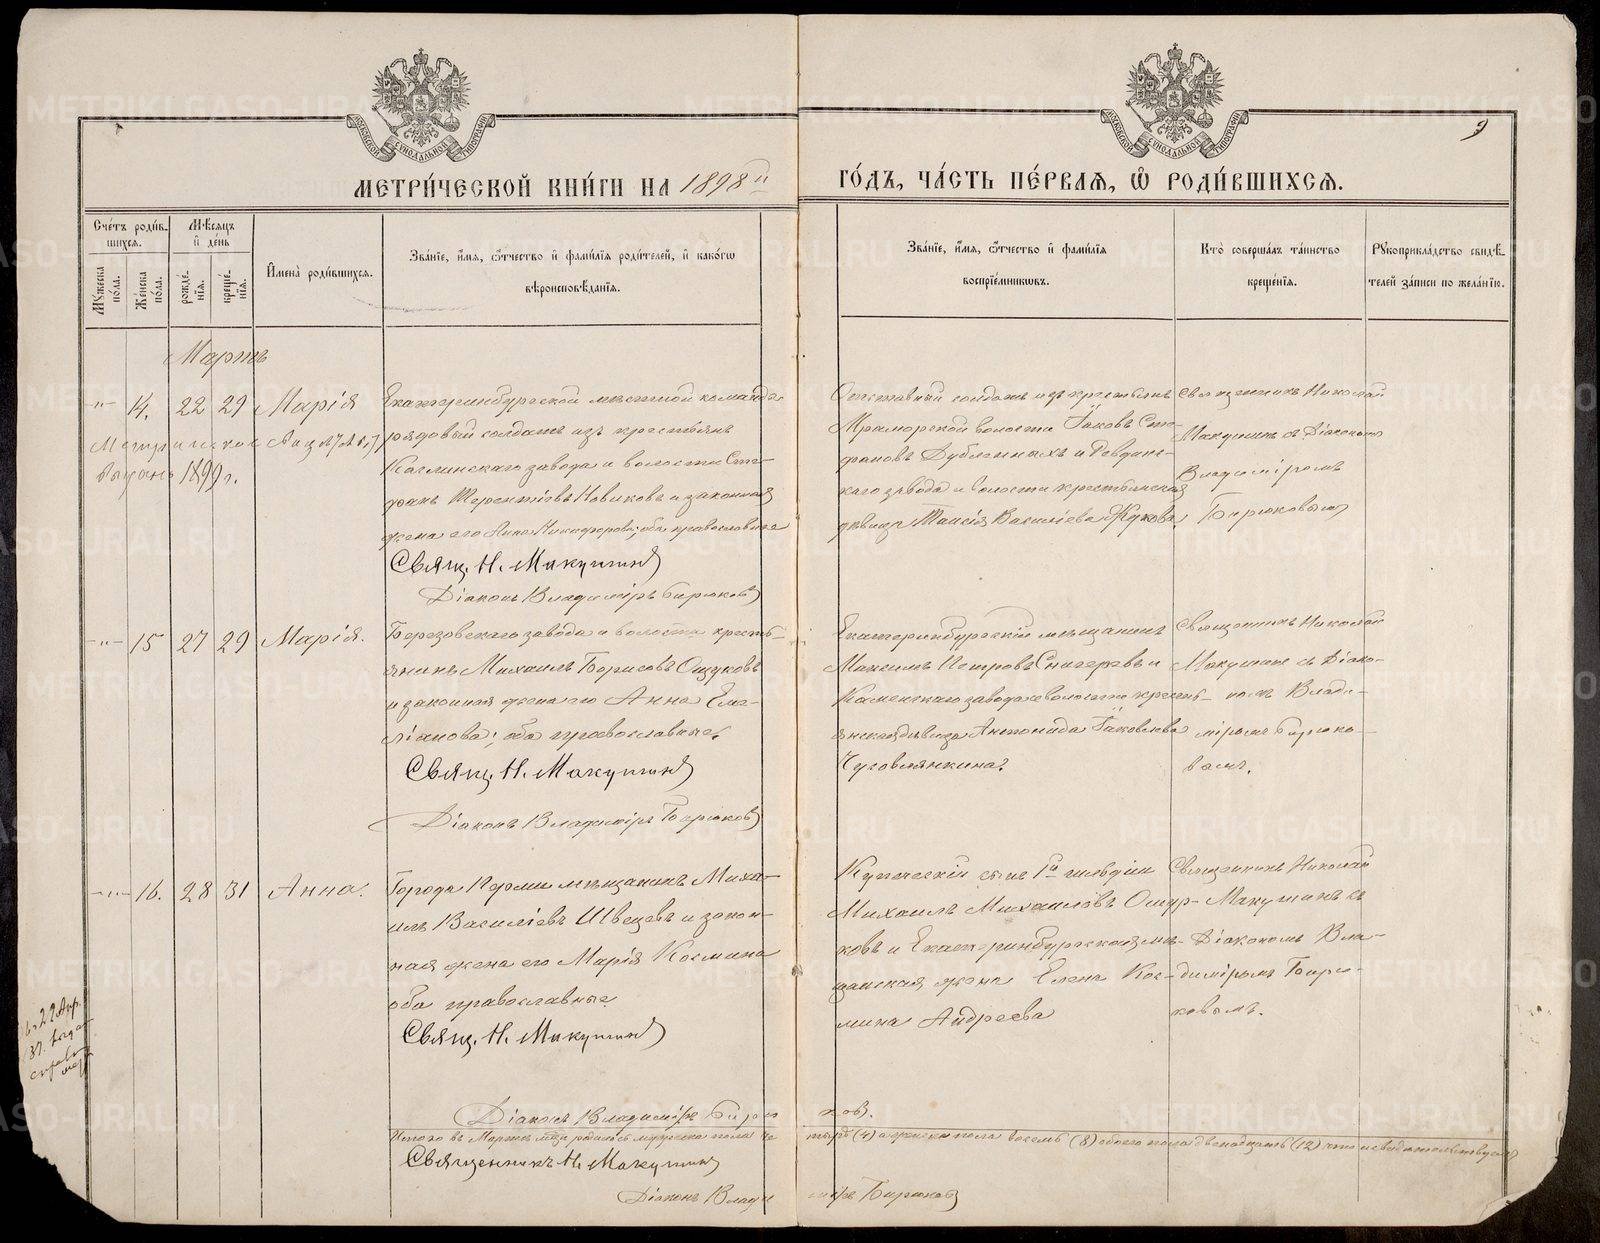 МОСКОВСКОЙ СУНОДАЛЬНОЙ ТИПОГРАФІИ
МОСКОВСКОЙ СУНОДАЛЬНОЙ ТИПОГРАФІИ
9
МЕТРИ́ЧЕСКОЙ КНИ́ГИ НА 1898й
ГО́ДЪ, ЧА́СТЬ ПЕ́РВАЯ, Ѽ РОДИ́ВШИХСЯ.
Сче́тъ роди́в-
шихся.
Му́жеска по́ла.
Же́нска по́ла.
Мѣ́сяцъ
и҆ де́нь
рожде́-
нія.
креще́-
нія.
И҆мена̀ роди́вшихся.
Зва́ніе, и҆́мя, ѻ҆́тчество и҆ фами́лія роди́телей, и҆ како́гѡ
вѣроисповѣ́данія.
Зва́ніе, и҆́мя, ѻ҆́тчество и҆ фами́лія
воспріе́мниковъ.
Кто̀ соверша́лъ та́инство
креще́нія.
Рукоприкла́дство свидѣ́-
телей за́писи по жела́нію.
Мартъ
-"- 14. 22 29 Марія
Екатеринбургской мѣстной команды
рядовый солдатъ изъ крестьянъ
Каслинскаго завода и волости Сте-
фанъ Терентіевъ Новиковъ и законная
жена его Анна Никифорова; оба православные
Свящ. Н. Макушинъ
Діаконъ Владиміръ Бирюковъ
1899 г.
Отставный солдатъ изъ крестьянъ
Мраморской волости Іаковъ Сте-
фановъ и Ревдинс-
каго завода и волости крестьянская
дѣвица Таисія Василіева Жукова
Священникъ Николай
Макушинъ съ Діакономъ
Владиміромъ
Бирюковымъ
-"- 15 27 29 Марія.
Березовскаго завода и волости кресть-
янинъ Михаилъ Борисовъ
и законная жена его Анна Еме-
ліанова; оба православные.
Свящ. Н. Макушинъ
Діаконъ Владиміръ Бирюковъ
Екатеринбургскій мѣщанинъ
Максимъ Петровъ Снигеревъ и
Каменскаго завода и волости кресть-
янская дѣвица Антонида Іаковлева
Священникъ Николай
Макушинъ съ Діако-
номъ Влади-
міромъ Бирюко-
вымъ.
-"- 16. 28 31 Анна.
Города Перми мѣщанинъ Миха-
илъ Василіевъ Швецевъ и закон-
ная жена его Марія Космина
оба православные
Свящ. Н. Макушинъ
Діаконъ Владиміръ Бирюковъ.
Купеческій сынъ 1й гильдіи
Михаилъ Михаиловъ Ошур-
ковъ и Екатеринбургская мѣ-
щанская жена Елена Кос-
мина Андреева
Священникъ Николай
Макушинъ съ
Діакономъ Вла-
диміромъ Бирю-
ковымъ.
Итого въ Мартѣ мѣсяцѣ родилось мужеска пола четыре (4) а женска пола восемь (8) обоего пола двенадцать (12) что и свидѣтельствуемъ
Священникъ Н. Макушинъ
Діаконъ Владиміръ Бирюковъ
METRIKI.GASO-URAL.RU